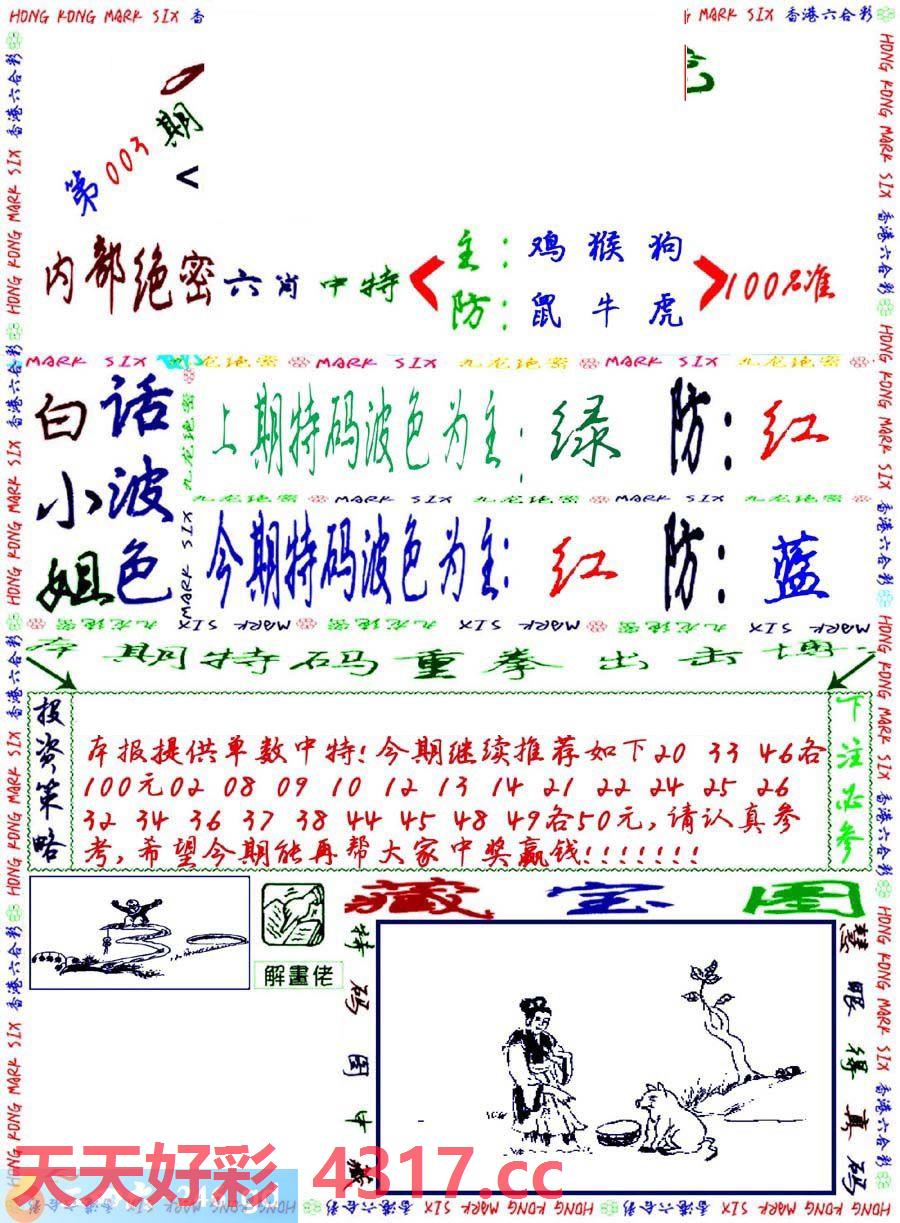 HONG KONG MARK SIX 香
MARK SIX 香港六合彩
第003期
内部绝密六肖中特
主：鸡猴狗
防：鼠牛虎
100%准
MARK SIX 九龙绝密 MARK SIX 九龙绝密 MARK SIX 九龙绝密
白话小波姐色
上期特码波色为主：绿 防：红
九龙绝密 MARK SIX 九龙绝密 MARK SIX 九龙绝密
今期特码波色为主：红 防：蓝
MARK SIX 九龙绝密 MARK SIX 九龙绝密 MARK SIX 九龙绝密 MARK SIX
本期特码重拳出击博
投资策略
本报提供单数中特!今期继续推荐如下20 33 46各
100元02 08 09 10 12 13 14 21 22 24 25 26
32 34 36 37 38 44 45 48 49各50元,请认真参
考,希望今期能再帮大家中奖赢钱!!!!!!!
下注必参
解畫佬
藏宝图
特码图中藏
慧眼得真码
天天好彩 4317.cc
HONG KONG MARK SIX 香港六合彩